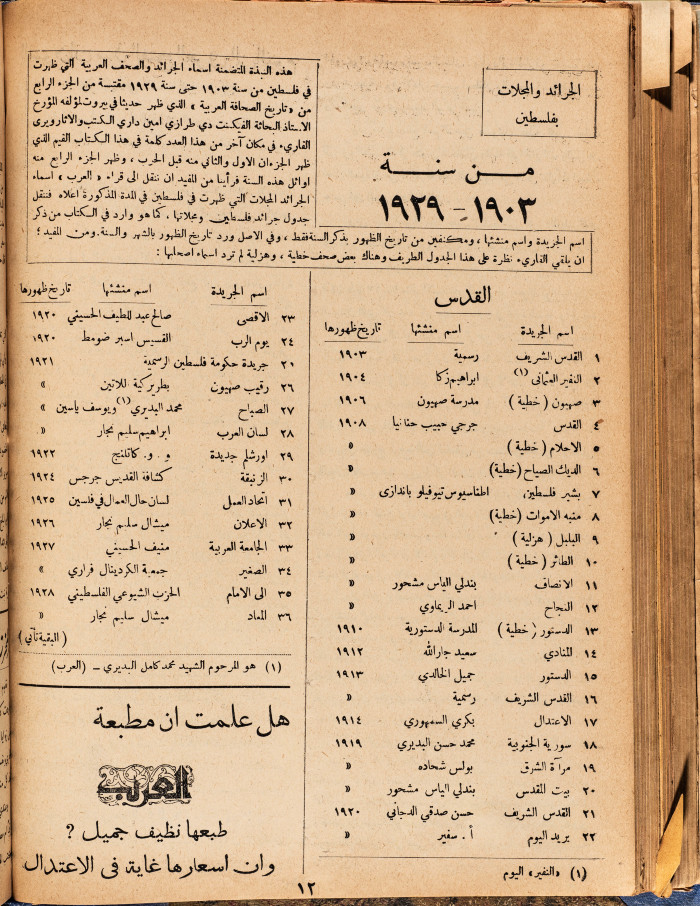 الجرائد والمجلات
بفلسطين
من سنة
١٩٠٣ - ١٩٢٩
هذه النبذة المتضمنة اسماء الجرائد والصحف العربية التي ظهرت
في فلسطين من سنة ١٩٠٣ حتى سنة ١٩٢٩ مقتبسة من الجزء الرابع
من «تاريخ الصحافة العربية» الذي ظهر حديثا في بيروت لمؤلفه المؤرخ
الاستاذ البحاثة الفيكنت دي طرازي امين داري الكتب والاثار ويرى
القاريء في مكان آخر من هذا العدد كلمة في هذا الكتاب القيم الذي
ظهر الجزءان الاول والثاني منه قبل الحرب ، وظهر الجزء الرابع منه
اوائل هذه السنة فرأينا من المفيد ان ننقل الى قراء « العرب » اسماء
الجرائد المجلات التي ظهرت في فلسطين في المدة المذكورة اعلاه فننقل
جدول جرائد فلسطين ومجلاتها ، كما هو وارد في الكتاب من ذكر
اسم الجريدة واسم منشئها ، ومكتفين من تاريخ الظهور بذكر السنة فقط ، وفي الاصل ورد تاريخ الظهور بالشهر والسنة . ومن المفيد ؛
ان يلقي القاريء نظرة على هذا الجدول الطريف وهناك بعض صحف خطية ، وهزلية لم ترد اسماء اصحابها :
القدس
اسم الجريدة اسم منشئها تاريخ ظهورها
١ القدس الشريف رسمية ١٩٠٣
٢ النفير العثماني (١) ابراهيم زكا ١٩٠٤
٣ صهيون ( خطية ) مدرسة صهيون ١٩٠٦
٤ القدس جرجي حبيب حنانيا ١٩٠٨
٥ الاحلام ( خطية ) »
٦ الديك الصياح ( خطية) »
٧ بشير فلسطين اطناسيوس تيوفيلو باندازى »
٨ منبه الاموات ( خطية) »
٩ البلبل ( هزلية ) »
١٠ الطائر ( خطية ) »
١١ الانصاف بندلي الياس مشحور »
١٢ النجاح احمد الريماوي »
١٣ الدستور ( خطية ) المدرسة الدستورية ١٩١٠
١٤ المنادي سعيد جارالله ١٩١٢
١٥ الدستور جميل الخالدي ١٩١٣
١٦ القدس الشريف رسمية »
١٧ الاعتدال بكري السمهوري ١٩١٤
١٨ سورية الجنوبية محمد حسن البديري ١٩١٩
١٩ مرآة الشرق بولس شحاده »
٢٠ بيت المقدس بندلي الياس مشحور »
٢١ القدس الشريف حسن صدقي الدجاني ١٩٢٠
٢٢ بريد اليوم أ . سفير »
(١) «النفير» اليوم
اسم الجريدة اسم منشئها تاريخ ظهورها
٢٣ الاقصى صالح عبد اللطيف الحسيني ١٩٢٠
٢٤ يوم الرب القسيس اسبر ضومط ١٩٢٠
٢١ جريدة حكومة فلسطين الرسمية ١٩٢١
٢٦ رقيب صهيون بطريركية اللاتين »
٢٧ الصباح محمد البديري (١) ويوسف ياسين »
٢٨ لسان العرب ابراهيم سليم نجار »
٢٩ اورشلم جديدة و . و. كاتلنيج ١٩٢٢
٣٠ الزنبقة كشافة القديس جرجس ١٩٢٤
٣١ اتحاد العمل لسان حال العمال في فلسين ١٩٢٥
٣٢ الاعلان ميشال سليم نجار ١٩٢٦
٣٣ الجامعة العربية منيف الحسيني ١٩٢٧
٣٤ الصغير جمعية الكردينال فراري »
٣٥ الى الامام الحزب الشيوعي الفلسطيني ١٩٢٨
٣٦ المعاد ميشال سليم نجار »
( البقية تأتي )
(١) هو المرحوم الشهيد محمد كامل البديري – (العرب)
هل علمت ان مطبعة
العرب
طبعها نظيف جميل ؟
وان اسعارها غاية في الاعتدال
١٢